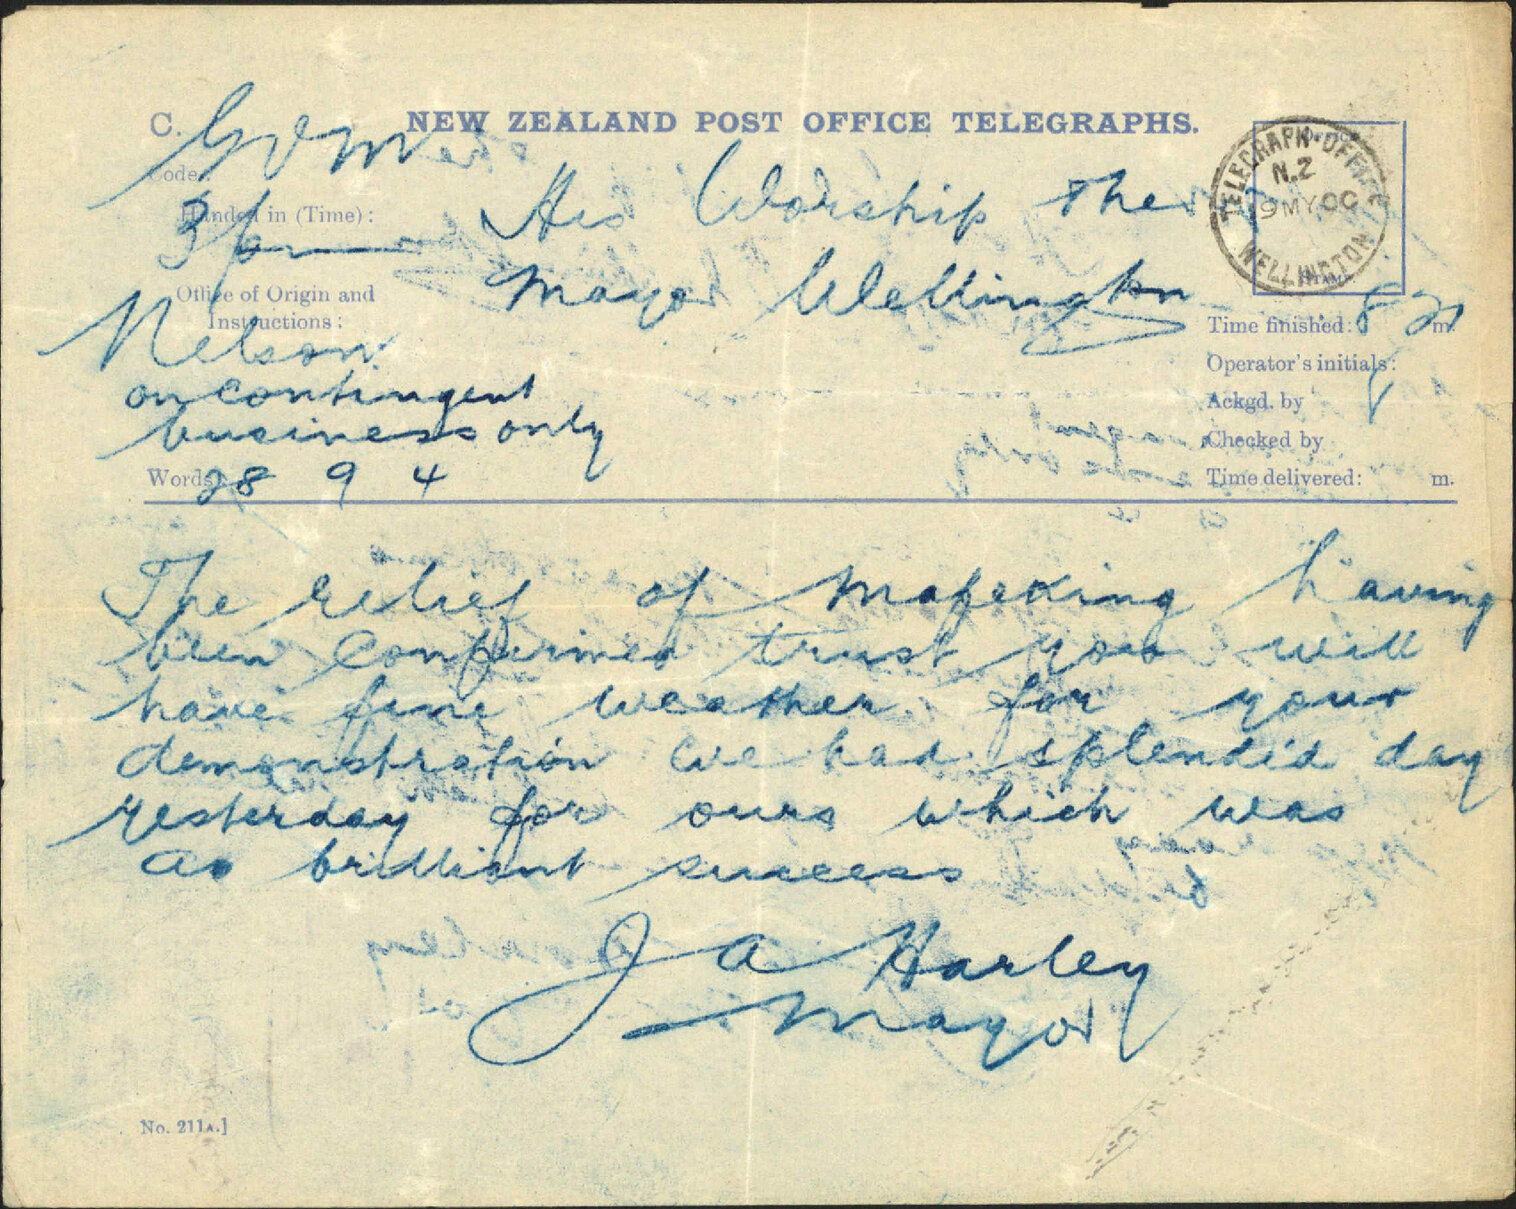 C. NEW ZEALAND POST OFFICE TELEGRAPHS.
Govm
Code:
Handed in (Time):
3 pm
His Worship the
Mayor Wellington
TELEGRAPH-OFFICE
N.Z
9 MY 00
WELLINGTON
Office of Origin and
Instructions:
Nelson
on contingent
business only
Words: 28 9 4
Time finished: m.
Operator's initials:
Ackgd. by
Checked by
Time delivered: m.
The relief of Mafeking having
been confirmed trust you will
have fine weather for your
demonstration we had splendid day
yesterday for ours which was
a brilliant success
J A Harley
Mayor
No. 211A.]